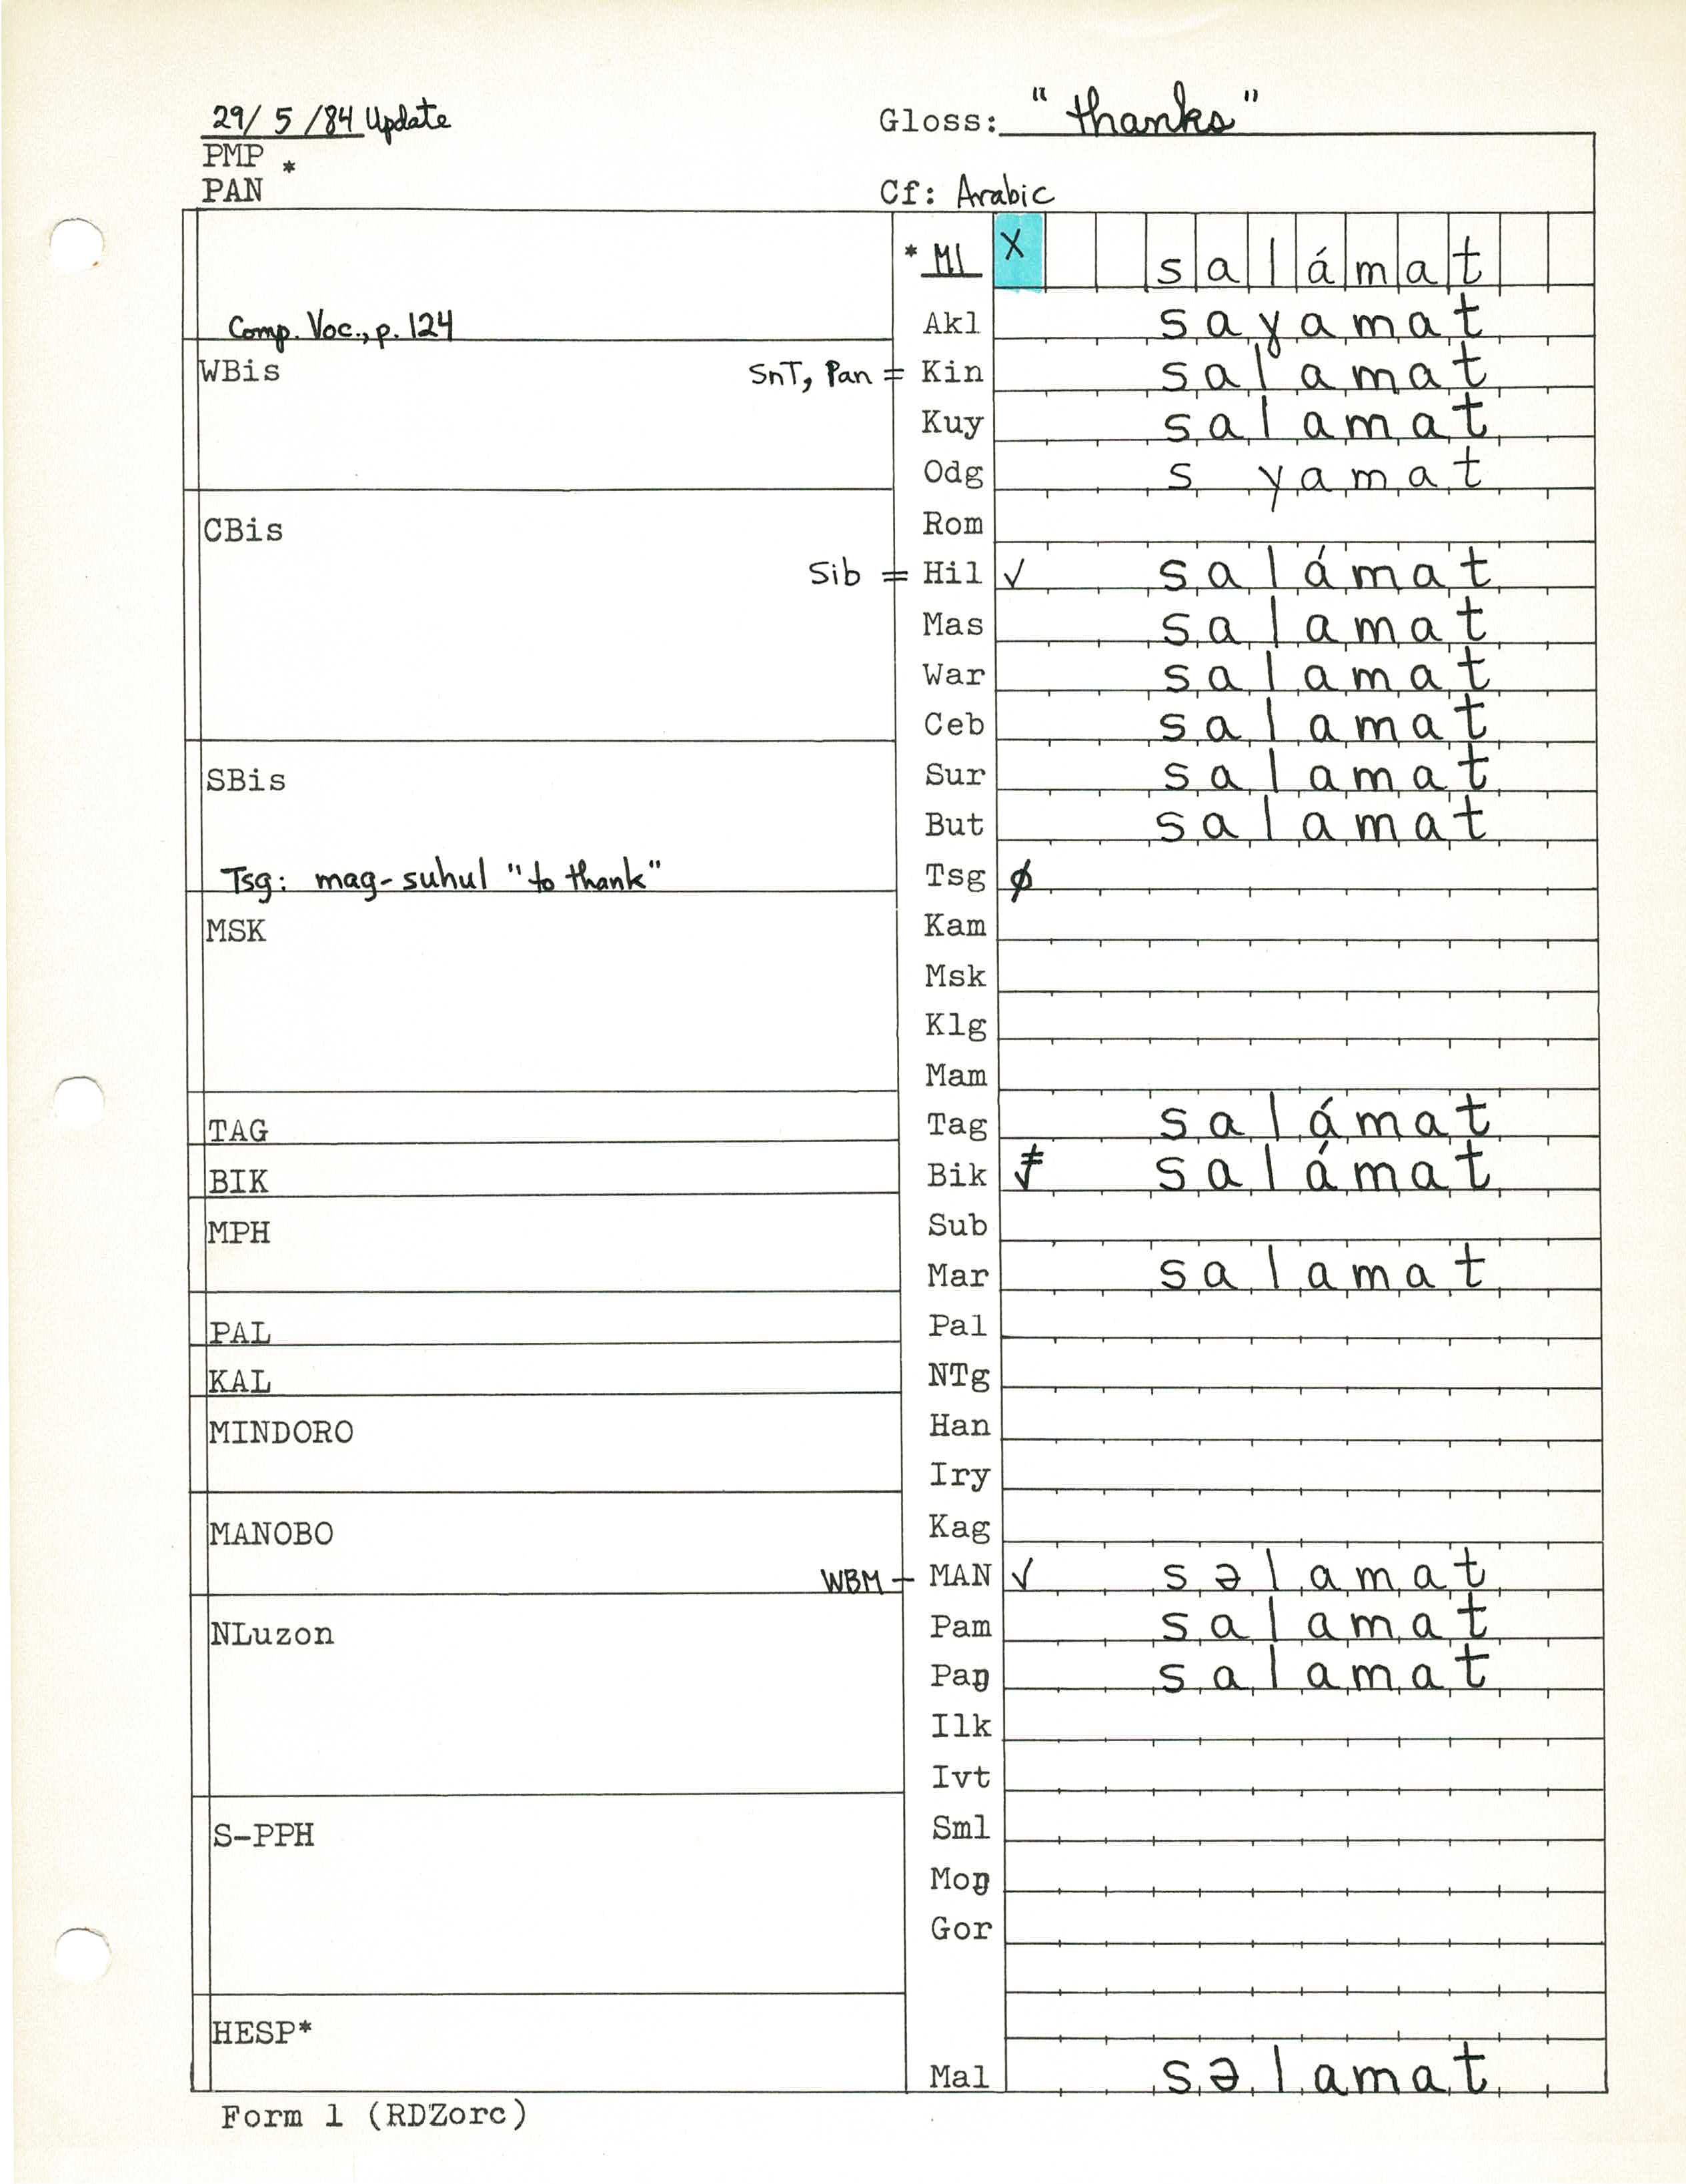 29/ 5 /84 Update
Gloss: "thanks"
PMP *
PAN
Cf: Arabic
* Ml X salámat
Comp. Voc., p. 124
Akl sayamat
WBis SnT, Pan = Kin salamat
Kuy salamat
Odg s yamat
CBis Rom
Sib = Hil ✓ salámat
Mas salamat
War salamat
Ceb salamat
SBis Sur salamat
But salamat
Tsg: mag-suhul "to thank" Tsg ∅
MSK Kam
Msk
Klg
Mam
TAG Tag salámat
BIK Bik salámat
MPH Sub
Mar salamat
PAL Pal
KAL NTg
MINDORO Han
Iry
MANOBO Kag
WBM – MAN ✓ səlamat
NLuzon Pam salamat
Paŋ salamat
Ilk
Ivt
S-PPH Sml
Moŋ
Gor
HESP*
Mal səlamat
Form 1 (RDZorc)